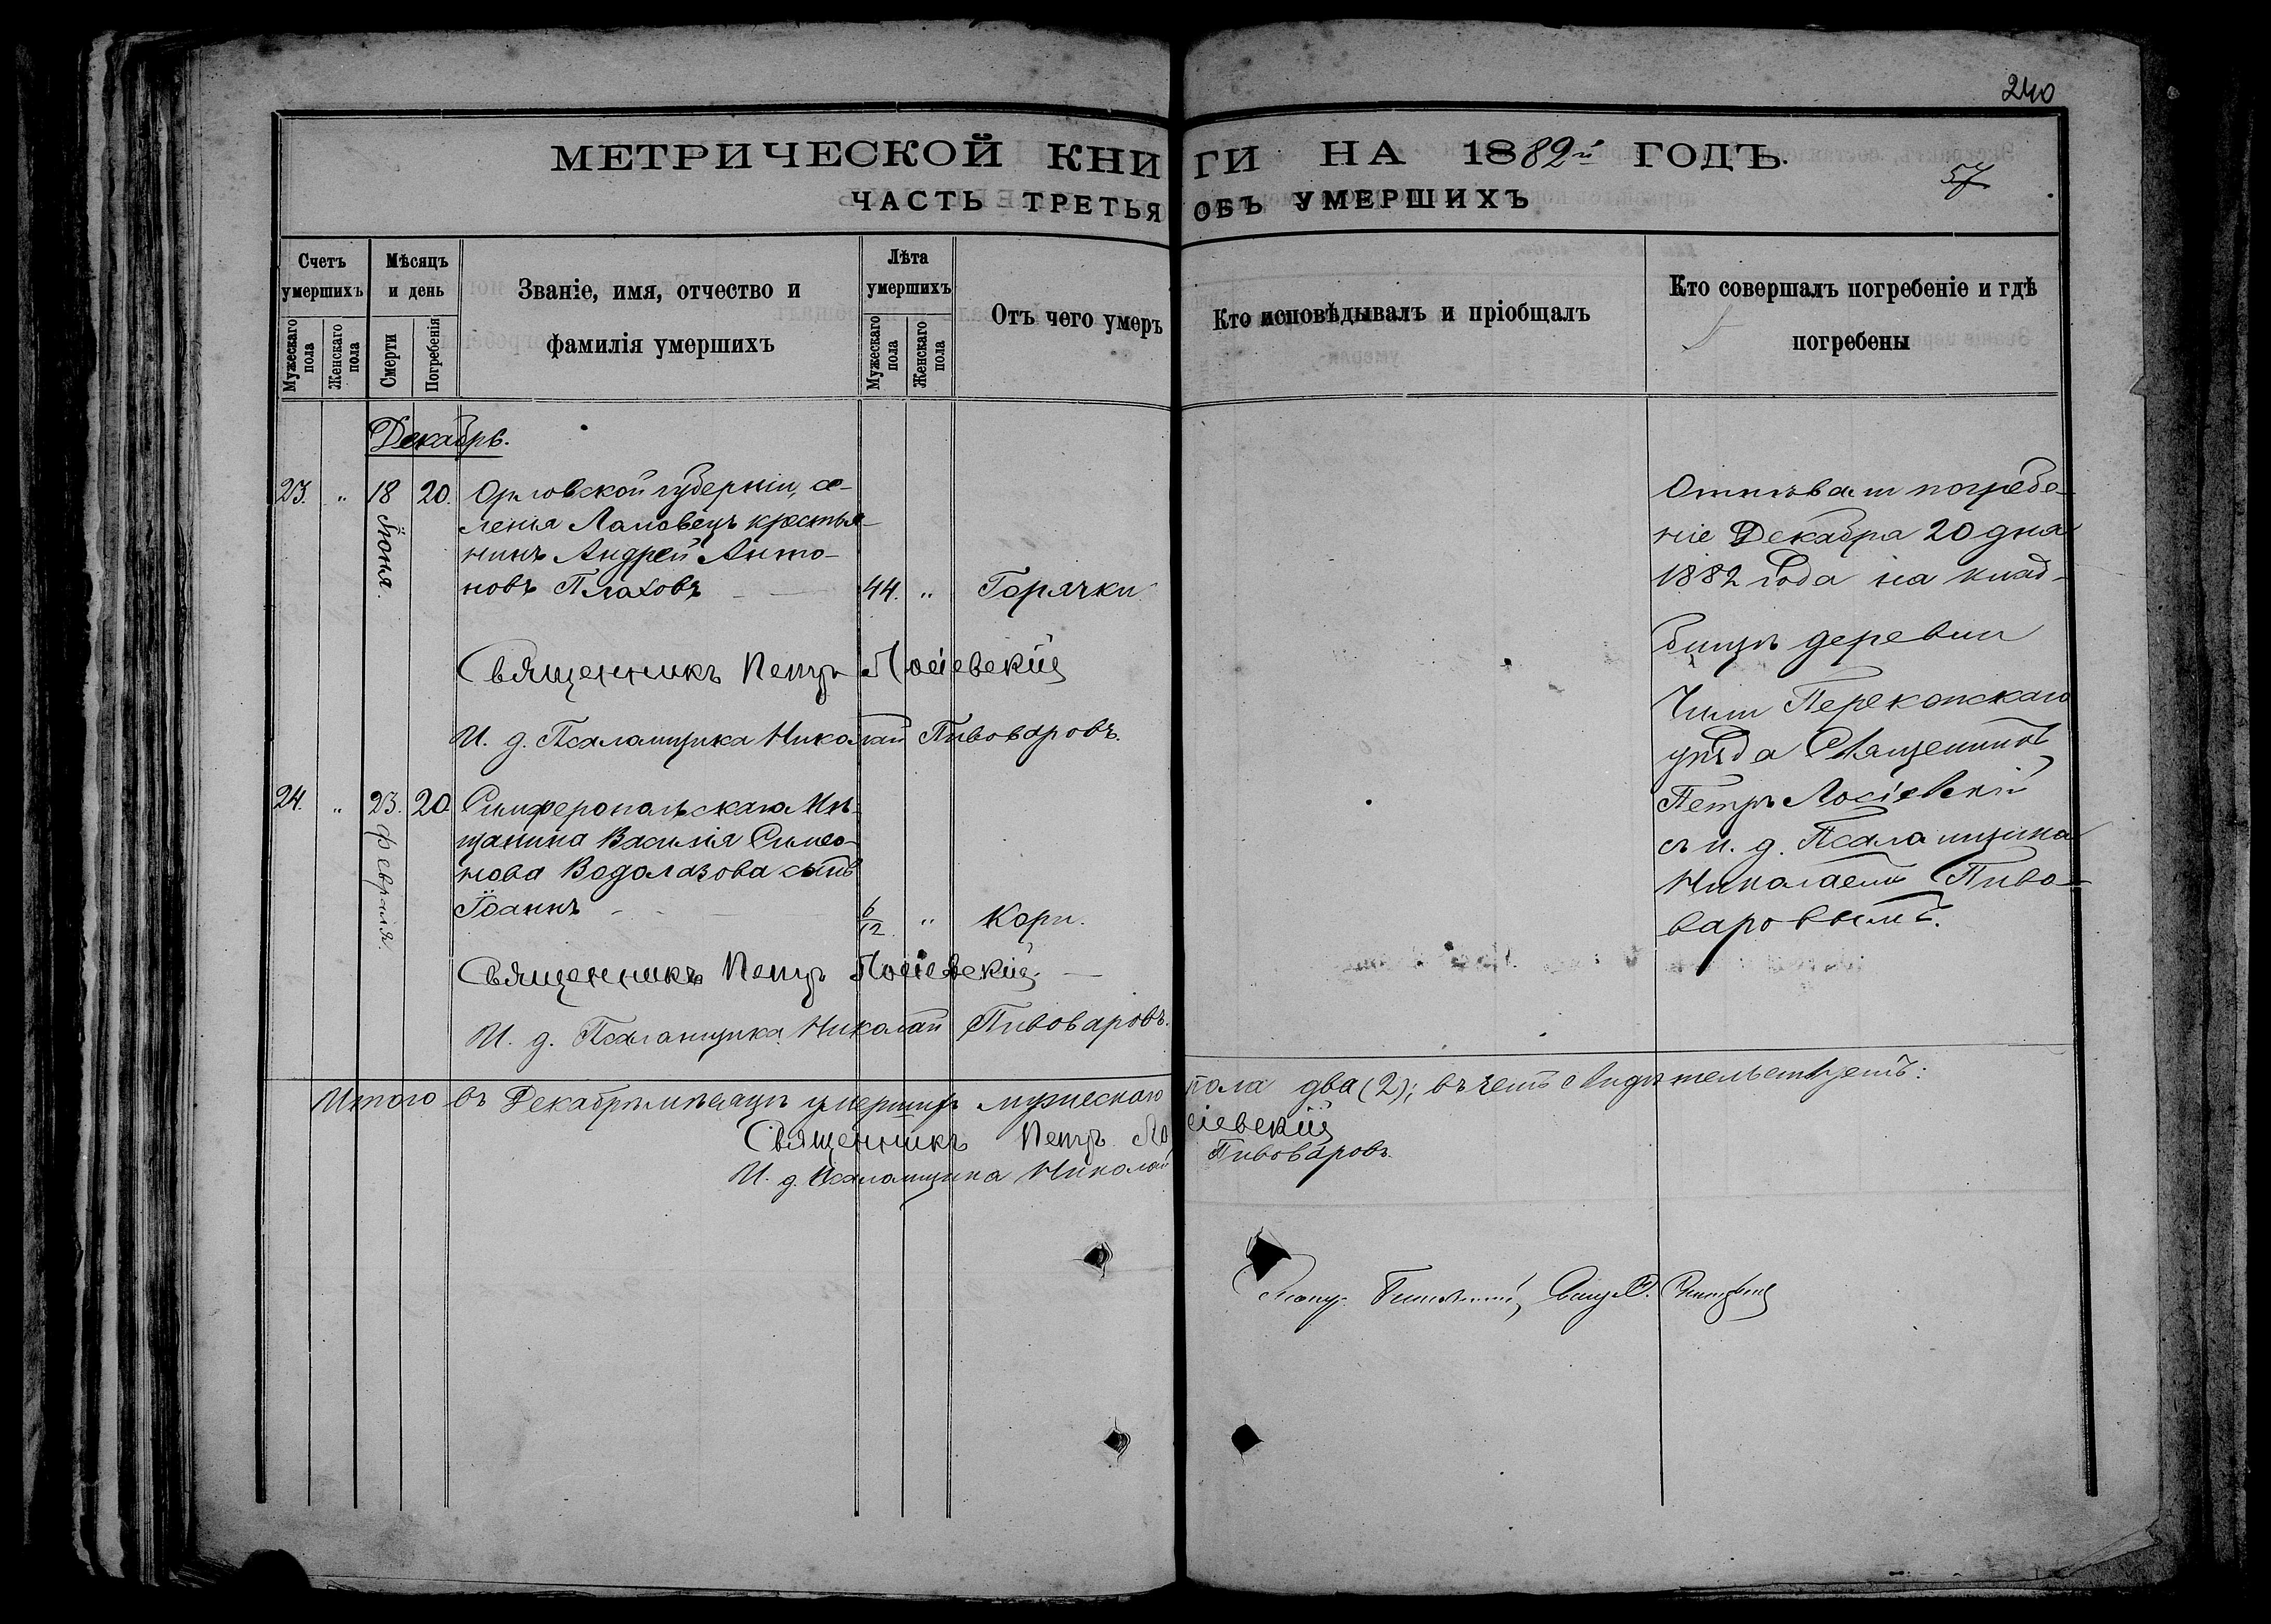 240
МЕТРИЧЕСКОЙ КНИГИ НА 1882й ГОДЪ.
57
ЧАСТЬ ТРЕТЬЯ ОБЪ УМЕРШИХЪ
Счетъ умершихъ
Мужескаго пола
Женскаго пола
Мѣсяцъ и день
Смерти
Погребенія
Званіе, имя, отчество и
фамилія умершихъ
Лѣта умершихъ
Мужескаго пола
Женскаго пола
Отъ чего умеръ
Кто исповѣдывалъ и пріобщалъ
Кто совершалъ погребеніе и гдѣ
погребены
Декабрь.
23. " 18 Іюня. 20. Орловской губерніи, се-
ленія Ламовецъ крестья-
нинъ Андрей Анто-
новъ Плаховъ 44. " Горячки
Священникъ Петръ Лосіевскій
И. д. Псаломщика Николай Пивоваровъ.
24. " 23. февраля. 20. Симферопольскаго Мѣ-
щанина Василія Симео-
нова Водолазова сынъ
Іоаннъ 6/12 " Кори.
Священникъ Петръ Лосіевскій
И. д. Псаломщика Николай Пивоваровъ.
Отпѣвали погребе-
ніе Декабря 20 дня
1882 года на клад-
бищѣ деревни
Перекопскаго
уѣзда Священникъ
Петръ Лосіевскій
съ и. д. Псаломщика
Николаемъ Пиво-
варовымъ.
Итого въ Декабрѣ мѣсяцѣ умершихъ мужескаго пола два (2); въ чемъ свидѣтельствуетъ:
Священникъ Петръ Лосіевскій
И. д. Псаломщика Николай Пивоваровъ.